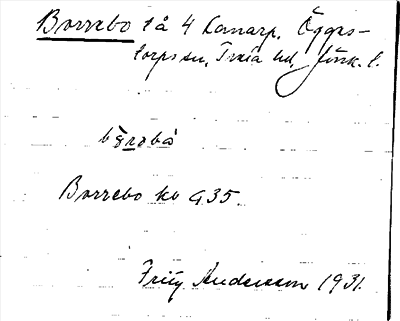 Borrebo tå 4 Komarp, Öggestorps sn, Tveta hd, Jönk. l.
bọrəbo
Borrebo kb G35.
Fritz Andersson 1931.